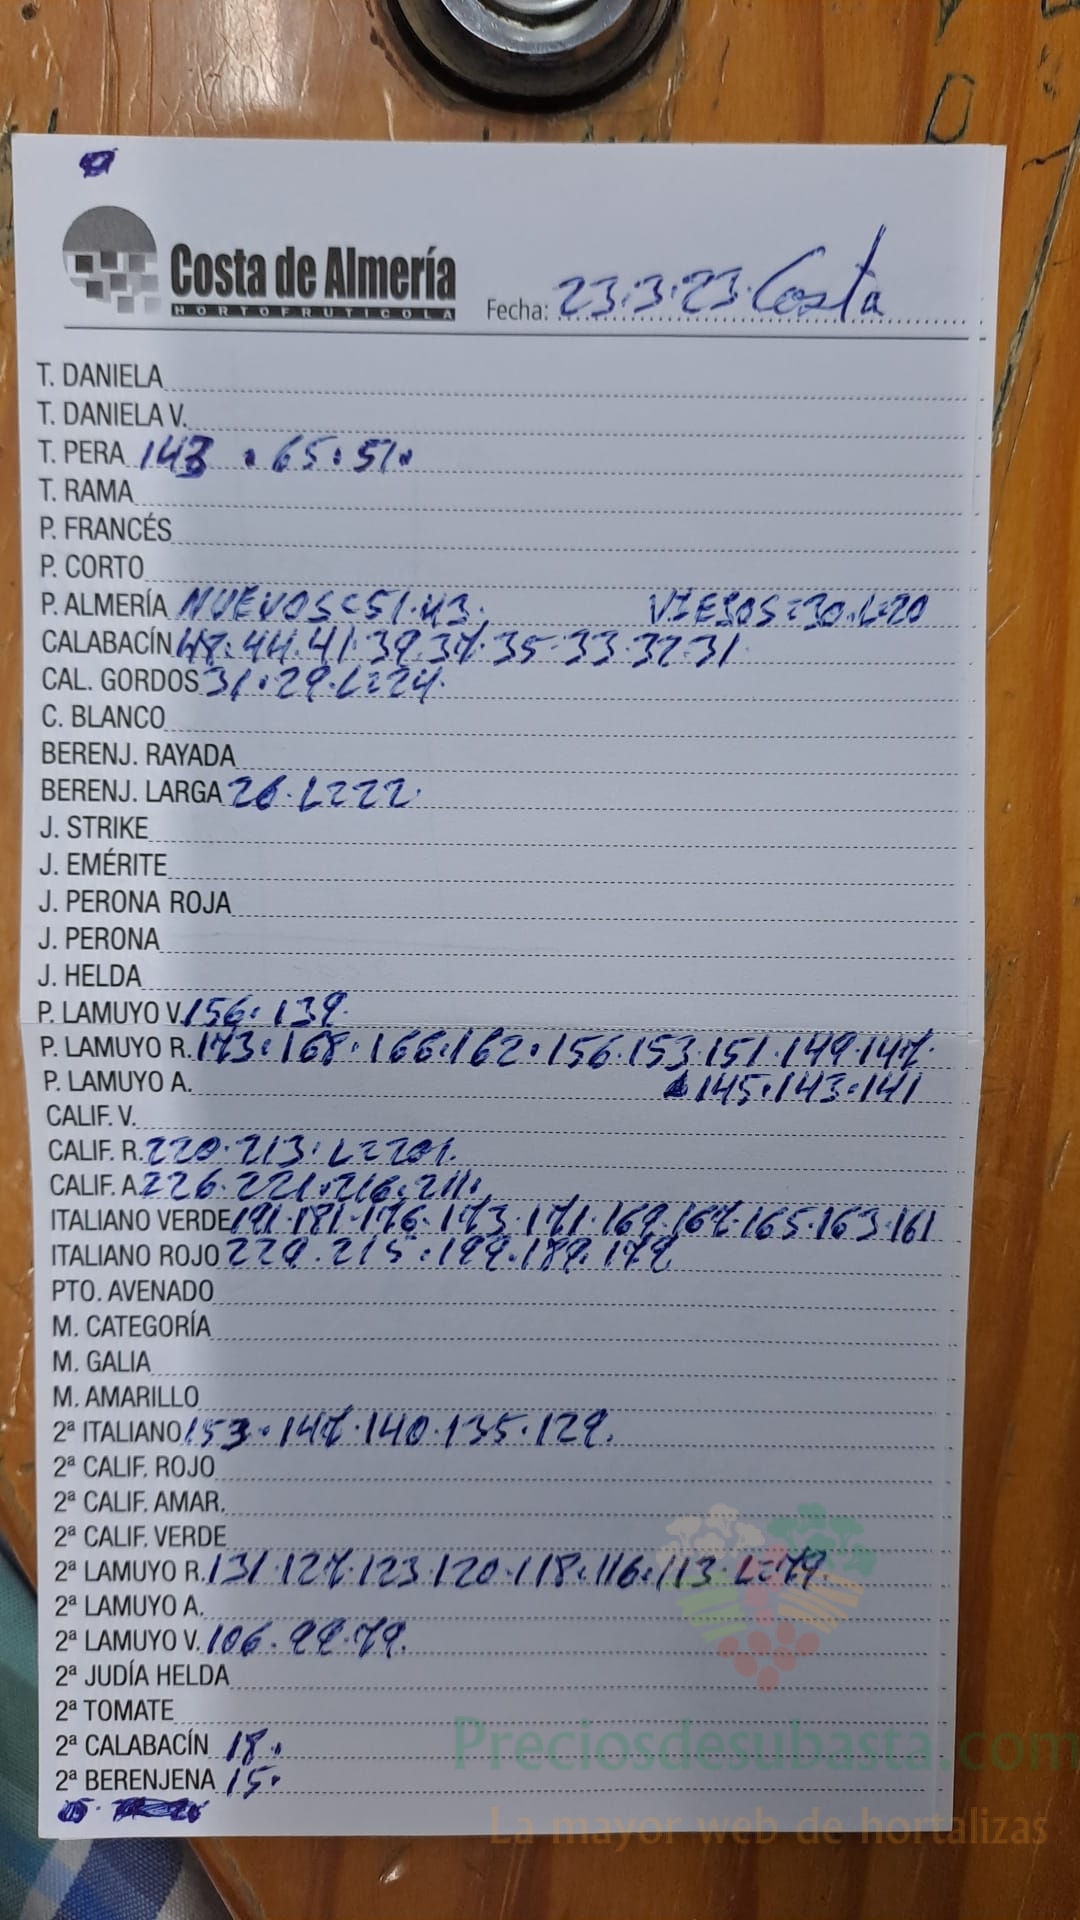 Costa de Almería
HORTOFRUTICOLA
Fecha: 23.3.23. Costa
T. DANIELA
T. DANIELA V.
T. PERA 143 . 65. 51.
T. RAMA
P. FRANCÉS
P. CORTO
P. ALMERÍA NUEVOS=51.43. VIEJOS=30.L=20
CALABACÍN 47.44.41.39.37.35.33.32.31
CAL. GORDOS 31.29.L=24.
C. BLANCO
BERENJ. RAYADA
BERENJ. LARGA 26.L=22.
J. STRIKE
J. EMÉRITE
J. PERONA ROJA
J. PERONA
J. HELDA
P. LAMUYO V. 156.139.
P. LAMUYO R. 173.168.166.162.156.153.151.149.147.
P. LAMUYO A. 145.143.141
CALIF. V.
CALIF. R. 220.213.L=201.
CALIF. A. 226.221.216.211.
ITALIANO VERDE 191.181.176.173.171.169.167.165.163.161
ITALIANO ROJO 229.215.199.189.179
PTO. AVENADO
M. CATEGORÍA
M. GALIA
M. AMARILLO
2ª ITALIANO 153.147.140.135.129.
2ª CALIF. ROJO
2ª CALIF. AMAR.
2ª CALIF. VERDE
2ª LAMUYO R. 131.127.123.120.118.116.113.L=79.
2ª LAMUYO A.
2ª LAMUYO V. 106.99.79.
2ª JUDÍA HELDA
2ª TOMATE
2ª CALABACÍN 18.
2ª BERENJENA 15.
Preciosdesubasta.com
La mayor web de hortalizas